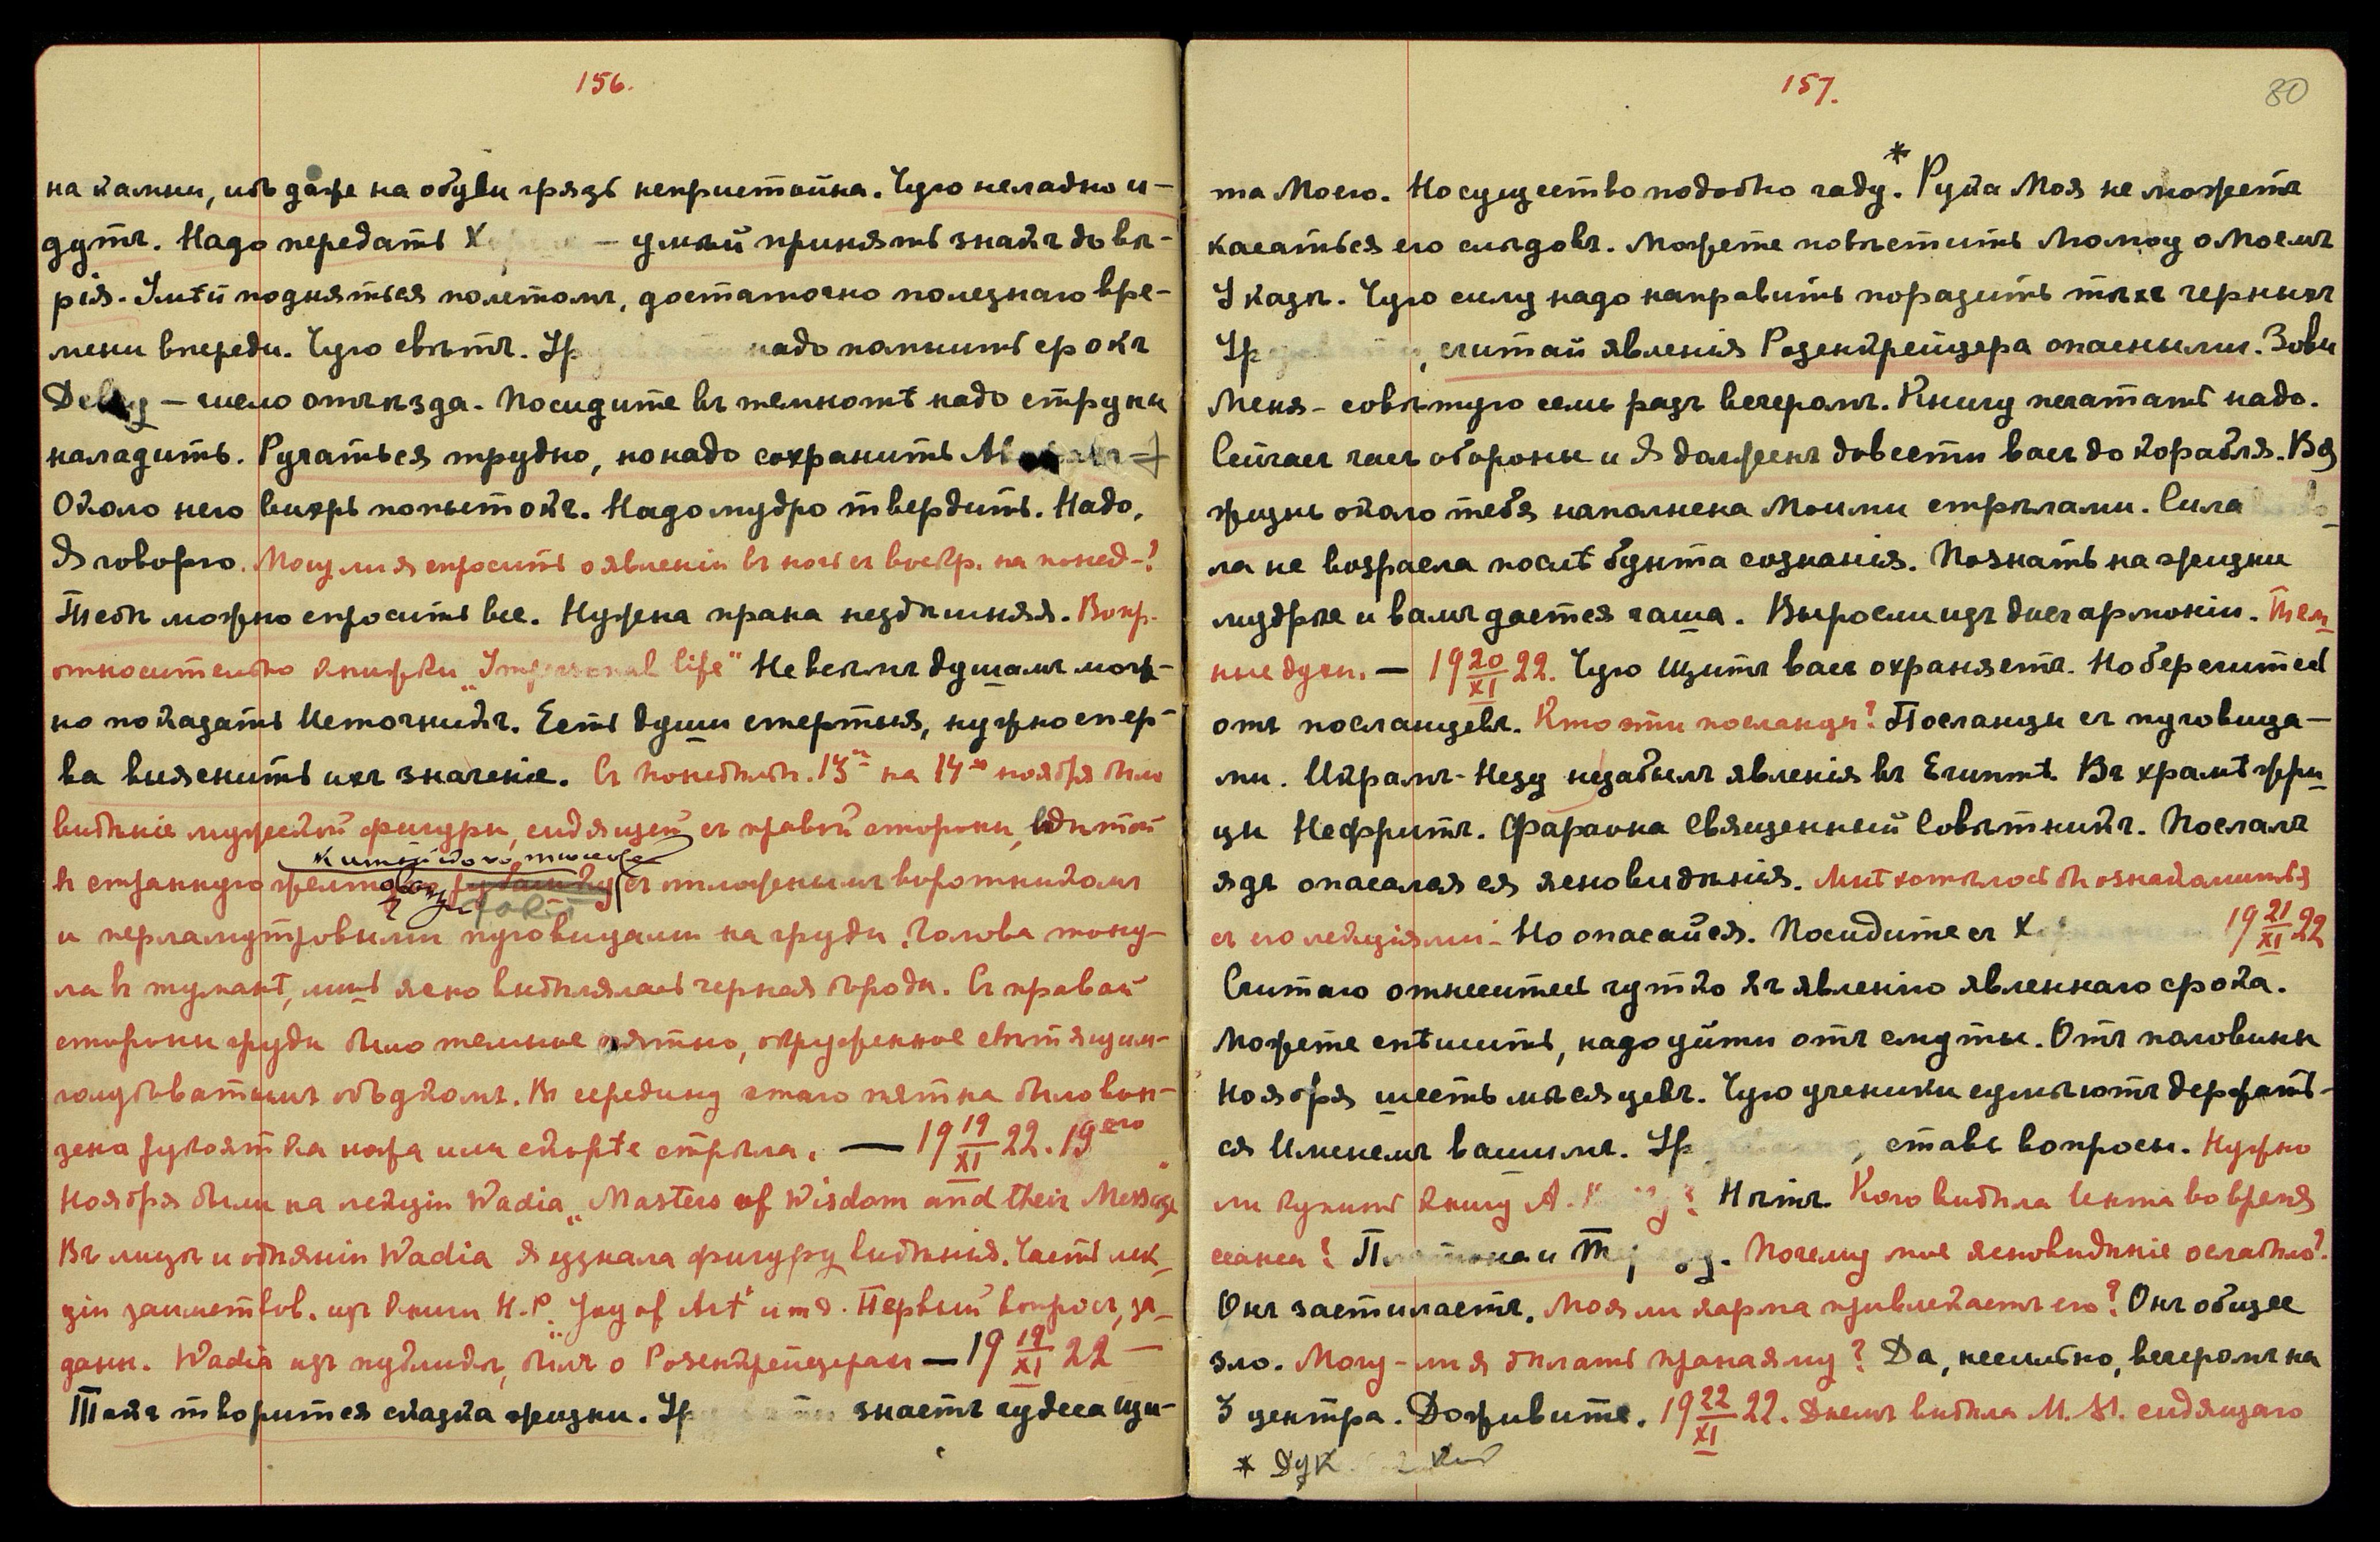 156.
на камни, ибъ даже на обуви грязь непристойна. Чую неладно и-
дутъ. Надо передать — умѣй принять знакъ довѣ-
рія. Умѣй подняться полетомъ, достаточно полезнаго вре-
мени впереди. Чую свѣтъ. Ур надо помнить срокъ
— число отъѣзда. Посидите въ темнотѣ надо струны
наладить. Ручаться трудно, но надо сохранить
Около него вихрь попытокъ. Надо мудро твердить. Надо,
Я говорю. Могу ли я спросить о явленіи въ ночь съ воскр. на понед-?
Тебѣ можно спросить все. Нужена прана нездѣшняя. Вопр.
относительно книжки „Impersonal life" Не всѣмъ душамъ мож-
но показать Источникъ. Есть души смертныя, нужно спер-
ва выяснить ихъ значеніе. Съ понедѣльн. 13го на 14ое ноября было
видѣніе мужской фигуры, сидящей съ правой стороны, одѣтой
китайскаго
въ странную желтую съ отложнымъ воротникомъ
и перламутровыми пуговицами на груди. Голова тону-
ла въ туманѣ, лишь ясно выдѣлялась черная борода. Съ правой
стороны груди было темное пятно, окруженное свѣтящим-
голубоватымъ ободкомъ. Въ середину этаго пятна было вон-
зена рукоятка ножа или скорѣе стрѣла. — 19 19/XI 22. 19ого
Ноября были на лекціи Wadia „Masters of Wisdom and their Message"
Въ лицѣ и одѣяніи Wadia я узнала фигуру видѣнія. Часть лек-
ціи заимствов. изъ книги Н.Р. „Joy of Art" и т.д. Первый вопросъ, за-
данн. Wadia изъ публики, былъ о Розенкрейцерахъ — 19 19/XI 22 —
Такъ творится сказка жизни. Ур знаетъ чудеса щи-
157.
80
та Моего. Но существо подобно гаду.* Рука Моя не можетъ
касаться его слѣдовъ. Можете повѣстить Момоу о Моемъ
Указѣ. Чую силу надо направить поразить тѣхъ черныхъ
Ур , считай явленія Розенкрейцера опасными. Зови
Меня - совѣтую семь разъ вечеромъ. Книгу печатать надо.
Сейчасъ часъ обороны и Я долженъ довести васъ до корабля. Вся
жизнь около тебя наполнена Моими стрѣлами. Сила
ла не возрасла послѣ бунта сознанія. Познать на жизни
мудрые и вамъ дается чаша. Выросли изъ дисгармоніи. Тем-
ные духи. — 19 20/XI 22. Чую Щитъ васъ охраняетъ. Но берегитесь
отъ посланцевъ. Кто эти посланцы? Посланцы съ пуговица-
ми. Икрамъ-Незу незабылъ явленія въ Египтѣ. Въ храмѣ жри-
цы Нефритъ. Фараона Священный Совѣтникъ. Послалъ
ядъ опасался ея ясновидѣнія. Мнѣ хотѣлось бы ознакомиться
съ его лекціями - Но опасайся. Посидите съ Х 19 21/XI 22
Считаю отнеситесь чутко къ явленію явленнаго срока.
Можете спѣшить, надо уйти отъ смуты. Отъ половины
Ноября шесть мѣсяцевъ. Чую ученики сумѣютъ держать-
ся Именемъ вашимъ. Ур , ставь вопросы. Нужно
ли купить книгу А. ? Нѣтъ. Кого видѣла Инта во время
сеанса? Платона и . Почему мое ясновидѣніе ослабло?
Онъ застилаетъ. Моя ли карма привлекаетъ его? Онъ общее
зло. Могу-ли я дѣлать пранаяму? Да, несильно, вечеромъ на
3 центра. Доживите. 19 22/XI 22. Днемъ видѣла М. М. сидящаго
* Дук